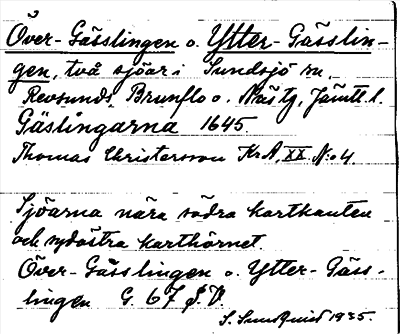 Över-Gässlingen o. Ytter-Gässlin-
gen, två sjöar i Sundsjö sn,
Revsunds, Brunflo o. Näs tg, Jämtl. l.
Gäslingarna 1645.
Thomas Christersson KrA, XX N:o 4.
Sjöarna nära södra kartkanten
och sydöstra karthörnet.
Över-Gässlingen o. Ytter-Gäss-
lingen G. 67 S. V.
S. Sundquist 1935.